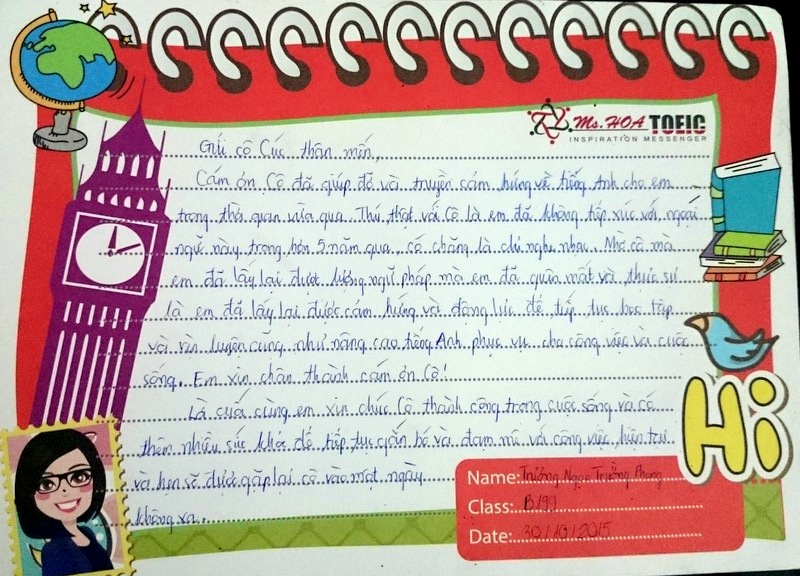 Ms.HOA TOEIC
INSPIRATION MESSENGER
Gửi cô Cúc thân mến,
Cảm ơn Cô đã giúp đỡ và truyền cảm hứng về tiếng Anh cho em
trong thời quan vừa qua. Thú thật với Cô là em đã không tiếp xúc với ngoại
ngữ này trong hơn 5 năm qua, có chăng là chỉ nghe nhạc. Nhờ cô mà
em đã lấy lại được lượng ngữ pháp mà em đã quên mất và thực sự
là em đã lấy lại được cảm hứng và động lực để tiếp tục học tập
và rèn luyện cũng như nâng cao tiếng Anh phục vụ cho công việc và cuộc
sống. Em xin chân thành cảm ơn Cô!
Là cuối cùng em xin chúc Cô thành công trong cuộc sống và có
thêm nhiều sức khỏe để tiếp tục gắn bó và đam mê với công việc hiện tại
và hẹn sẽ được gặp lại cô vào một ngày
không xa.
Hi
Name: Trương Ngọc Phong
Class: B199
Date: 30/10/2015